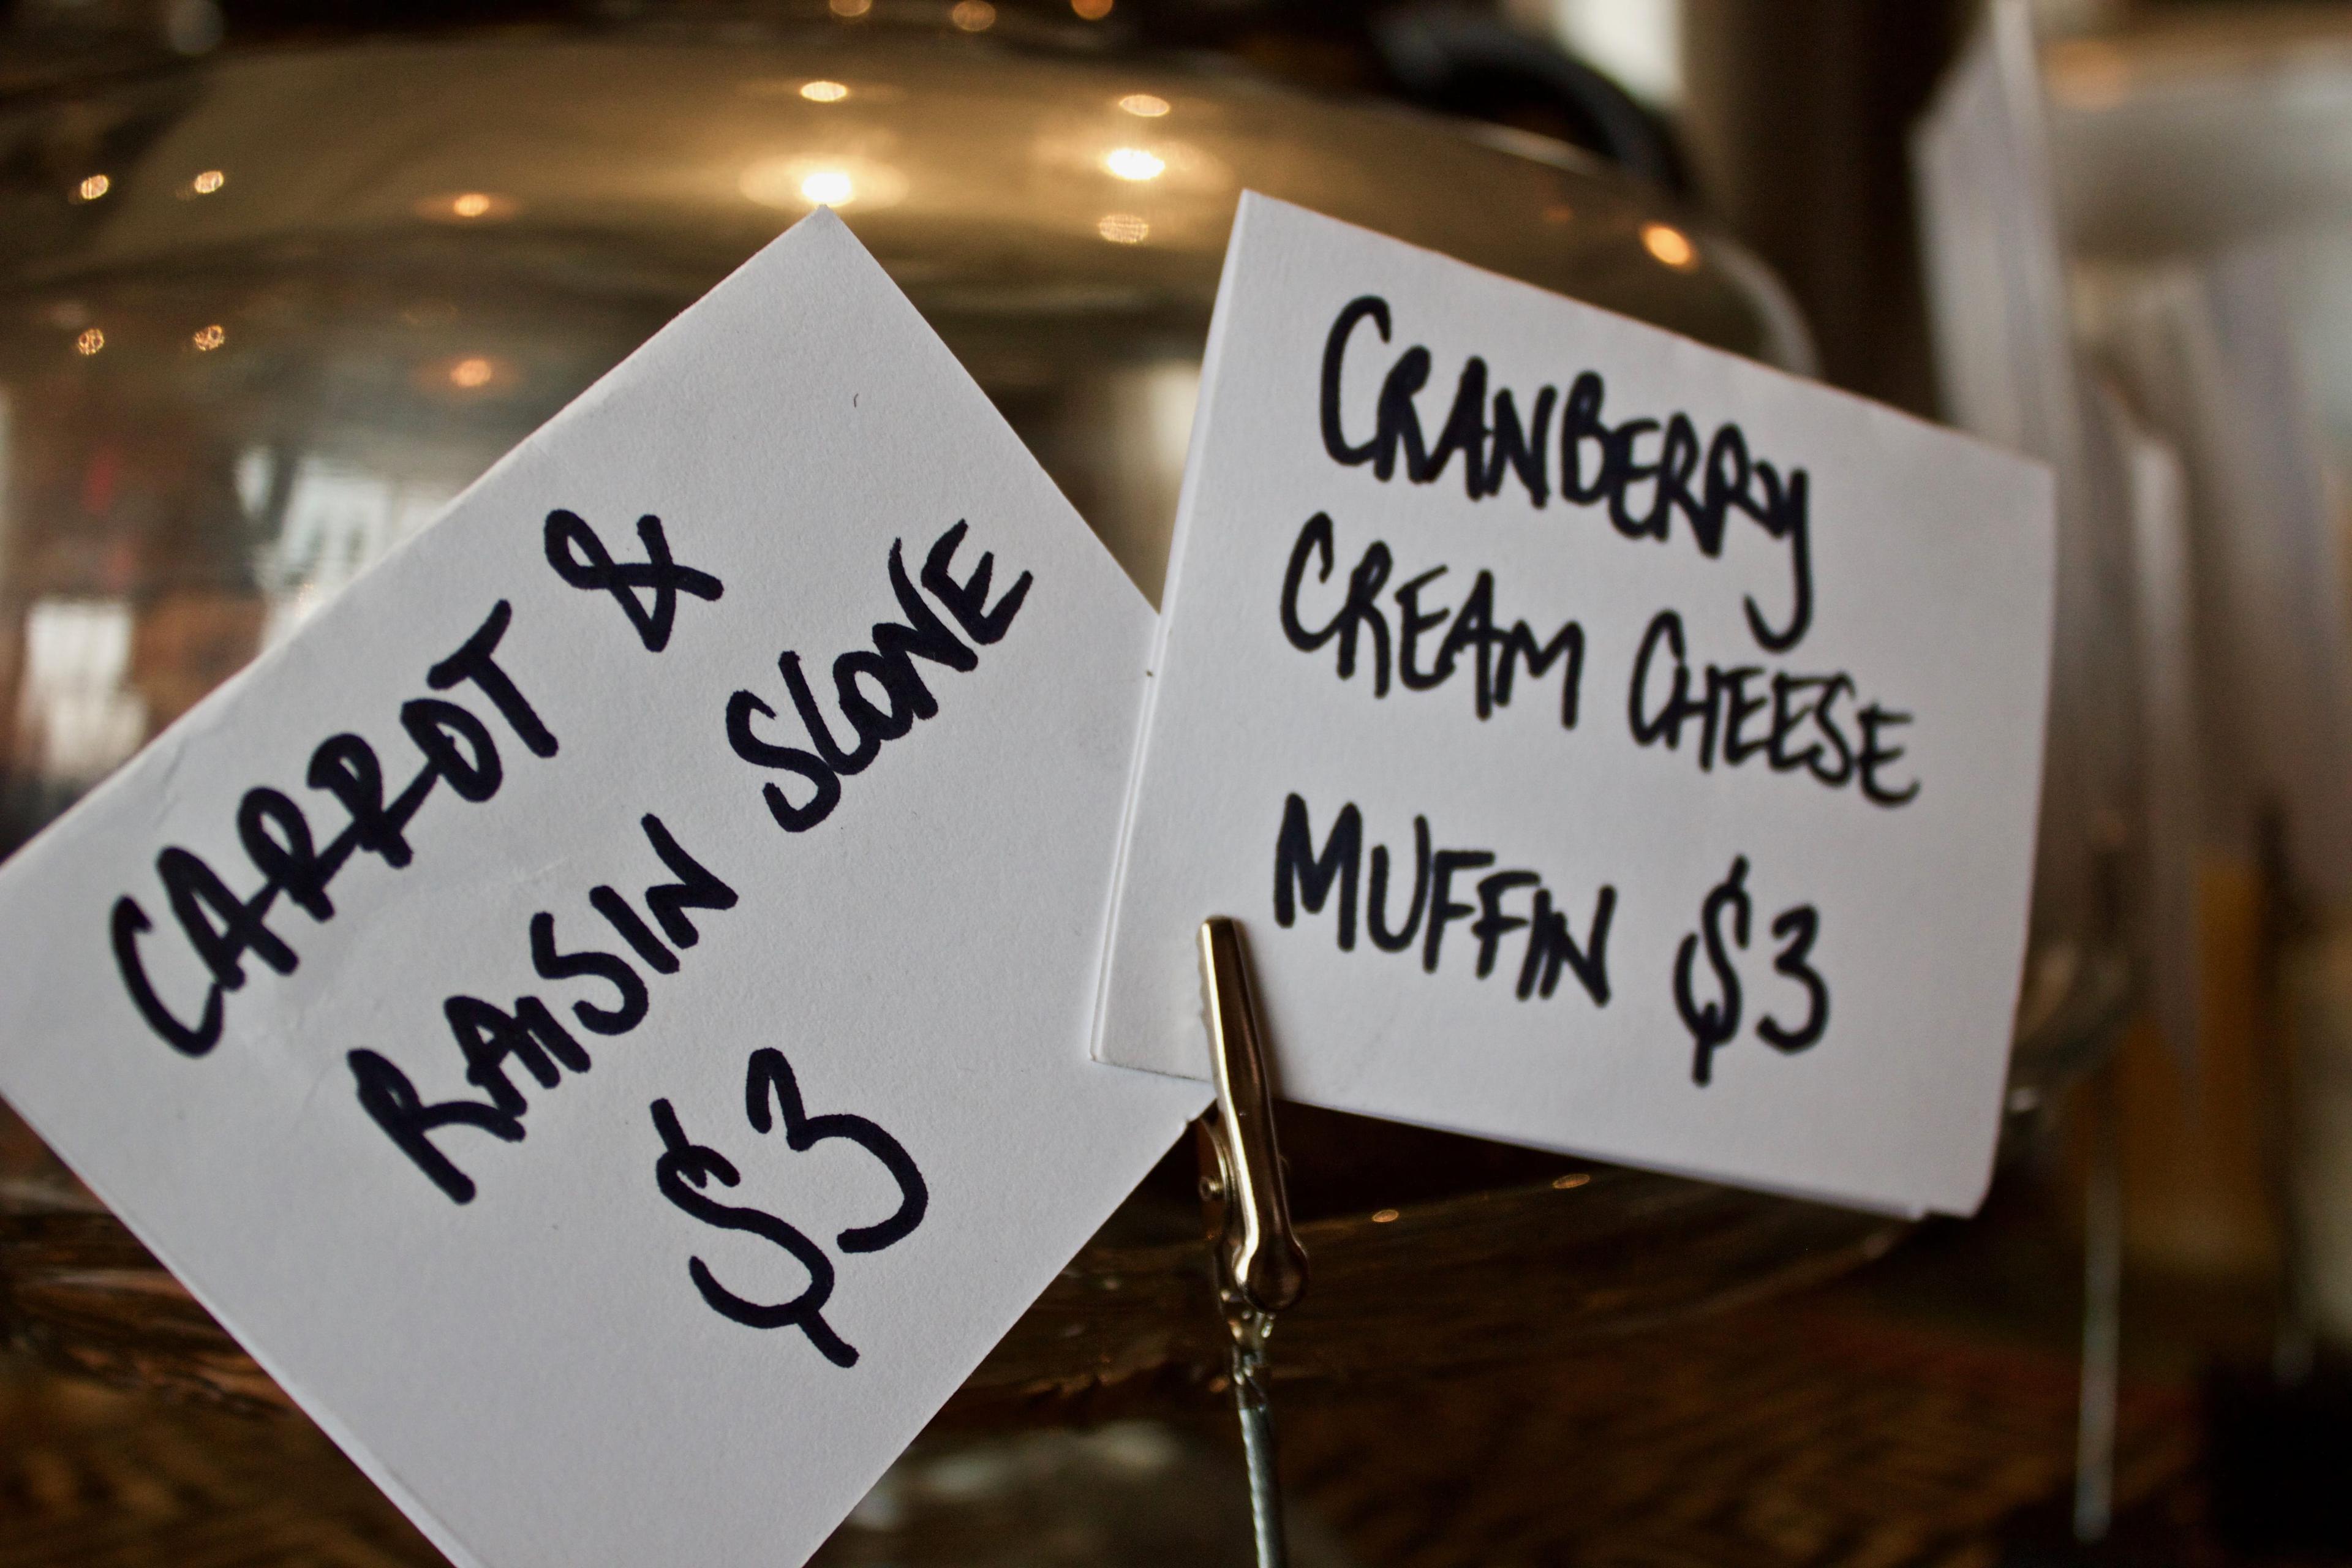 CARROT &
RAISIN SCONE
$3
CRANBERRY
CREAM CHEESE
MUFFIN $3